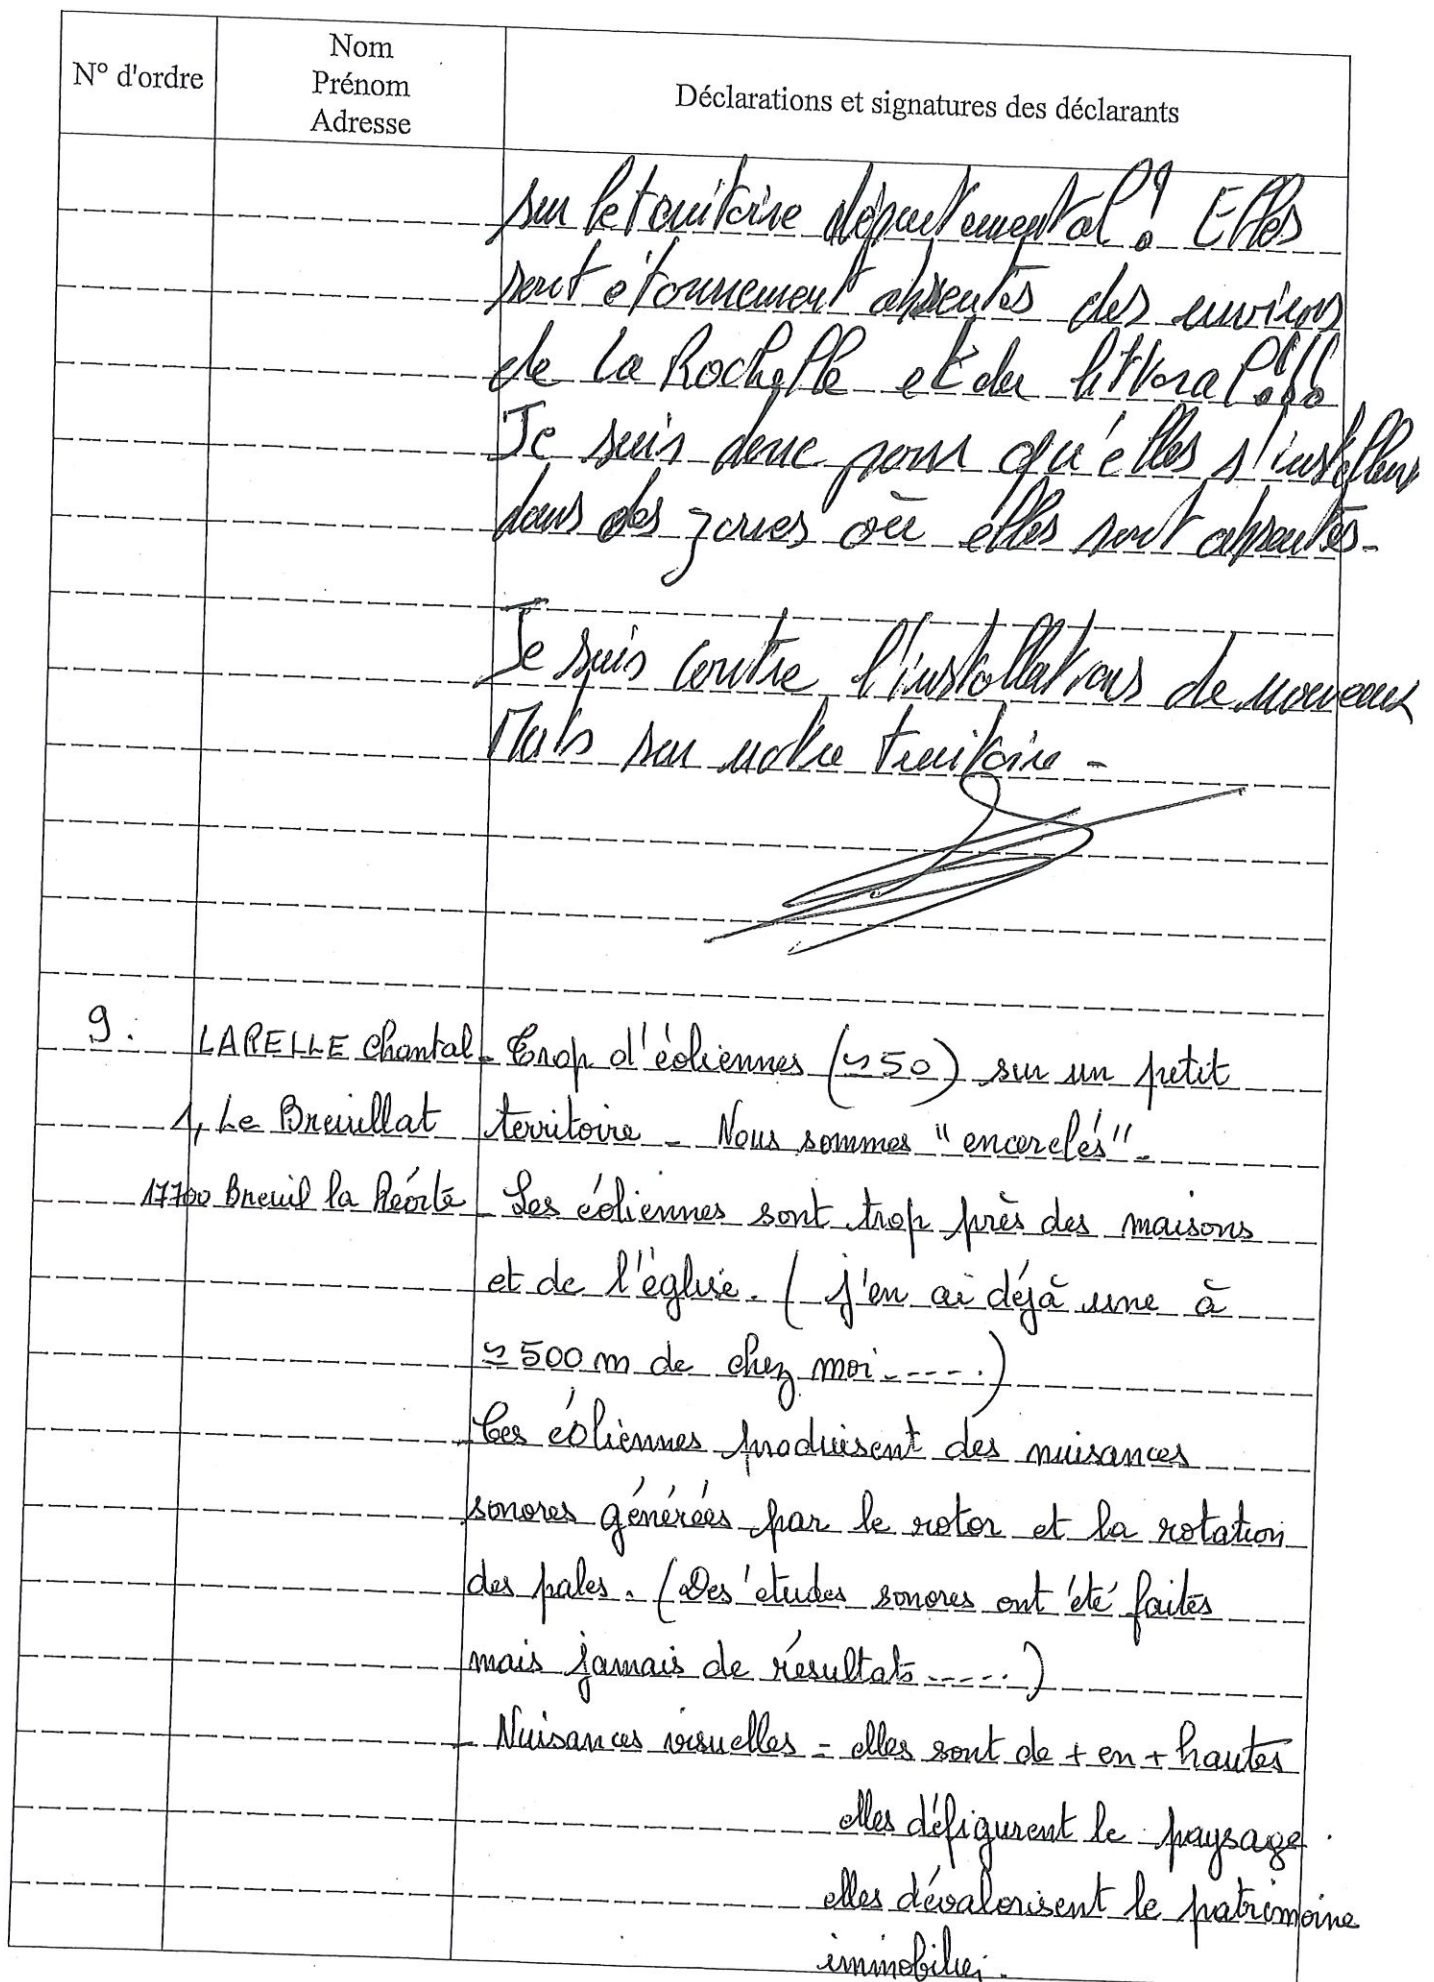 N° d'ordre
Nom
Prénom
Adresse
Déclarations et signatures des déclarants
sur le territoire départemental ! Elles
sont étonnement absentes des environs
de La Rochelle et du littoral !!!
Je suis donc pour qu'elles s'installent
dans des zones où elles sont absentes -
Je suis contre l'installations de nouveaux
Mats sur notre territoire -
9. LAPELLE Chantal - Trop d'éoliennes (≃ 50) sur un petit
1, Le Breuillat territoire - Nous sommes "encerclés" -
17700 Breuil la Réorte - Les éoliennes sont trop près des maisons
et de l'église. ( j'en ai déjà une à
≃ 500 m de chez moi -----)
- Ces éoliennes produisent des nuisances
sonores générées par le rotor et la rotation
des pales. (Des études sonores ont été faites
mais jamais de résultats -----)
- Nuisances visuelles = elles sont de + en + hautes
elles défigurent le paysage.
elles dévalorisent le patrimoine
immobilier.